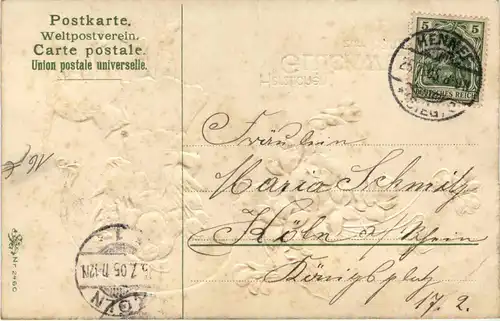 Postkarte.
Weltpostverein.
Carte postale.
Union postale universelle.
5 5
DEUTSCHES REICH
HENNEF
(SIEG)
Fräulein
Maria Schmitz
Köln a/Rhein
Königsplatz
17. 2.
5.7.05.11-12N
CÖLN
Nr 2460